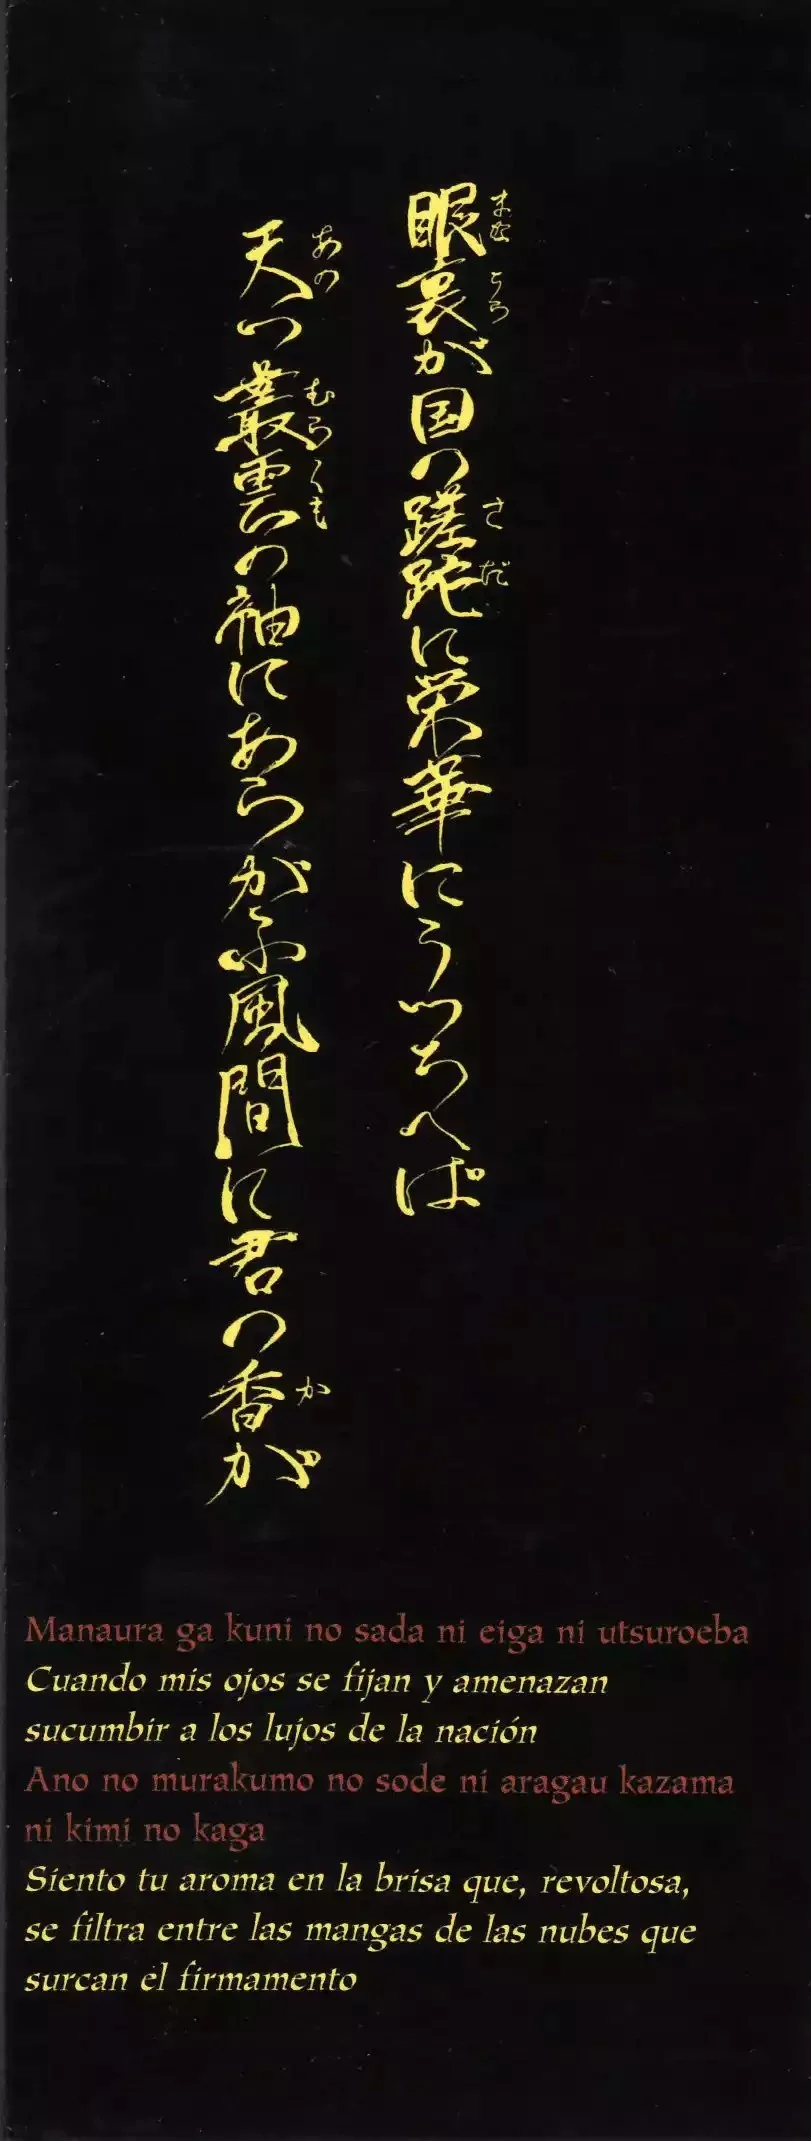 眼裏が国の蹉跎に栄華にうつろへば
まな うら
さだ
天つ叢雲の袖にあらがふ風間に君の香が
あの
むらくも
か
Manaura ga kuni no sada ni eiga ni utsuroeba
Cuando mis ojos se fijan y amenazan
sucumbir a los lujos de la nación
Ano no murakumo no sode ni aragau kazama
ni kimi no kaga
Siento tu aroma en la brisa que, revoltosa,
se filtra entre las mangas de las nubes que
surcan el firmamento